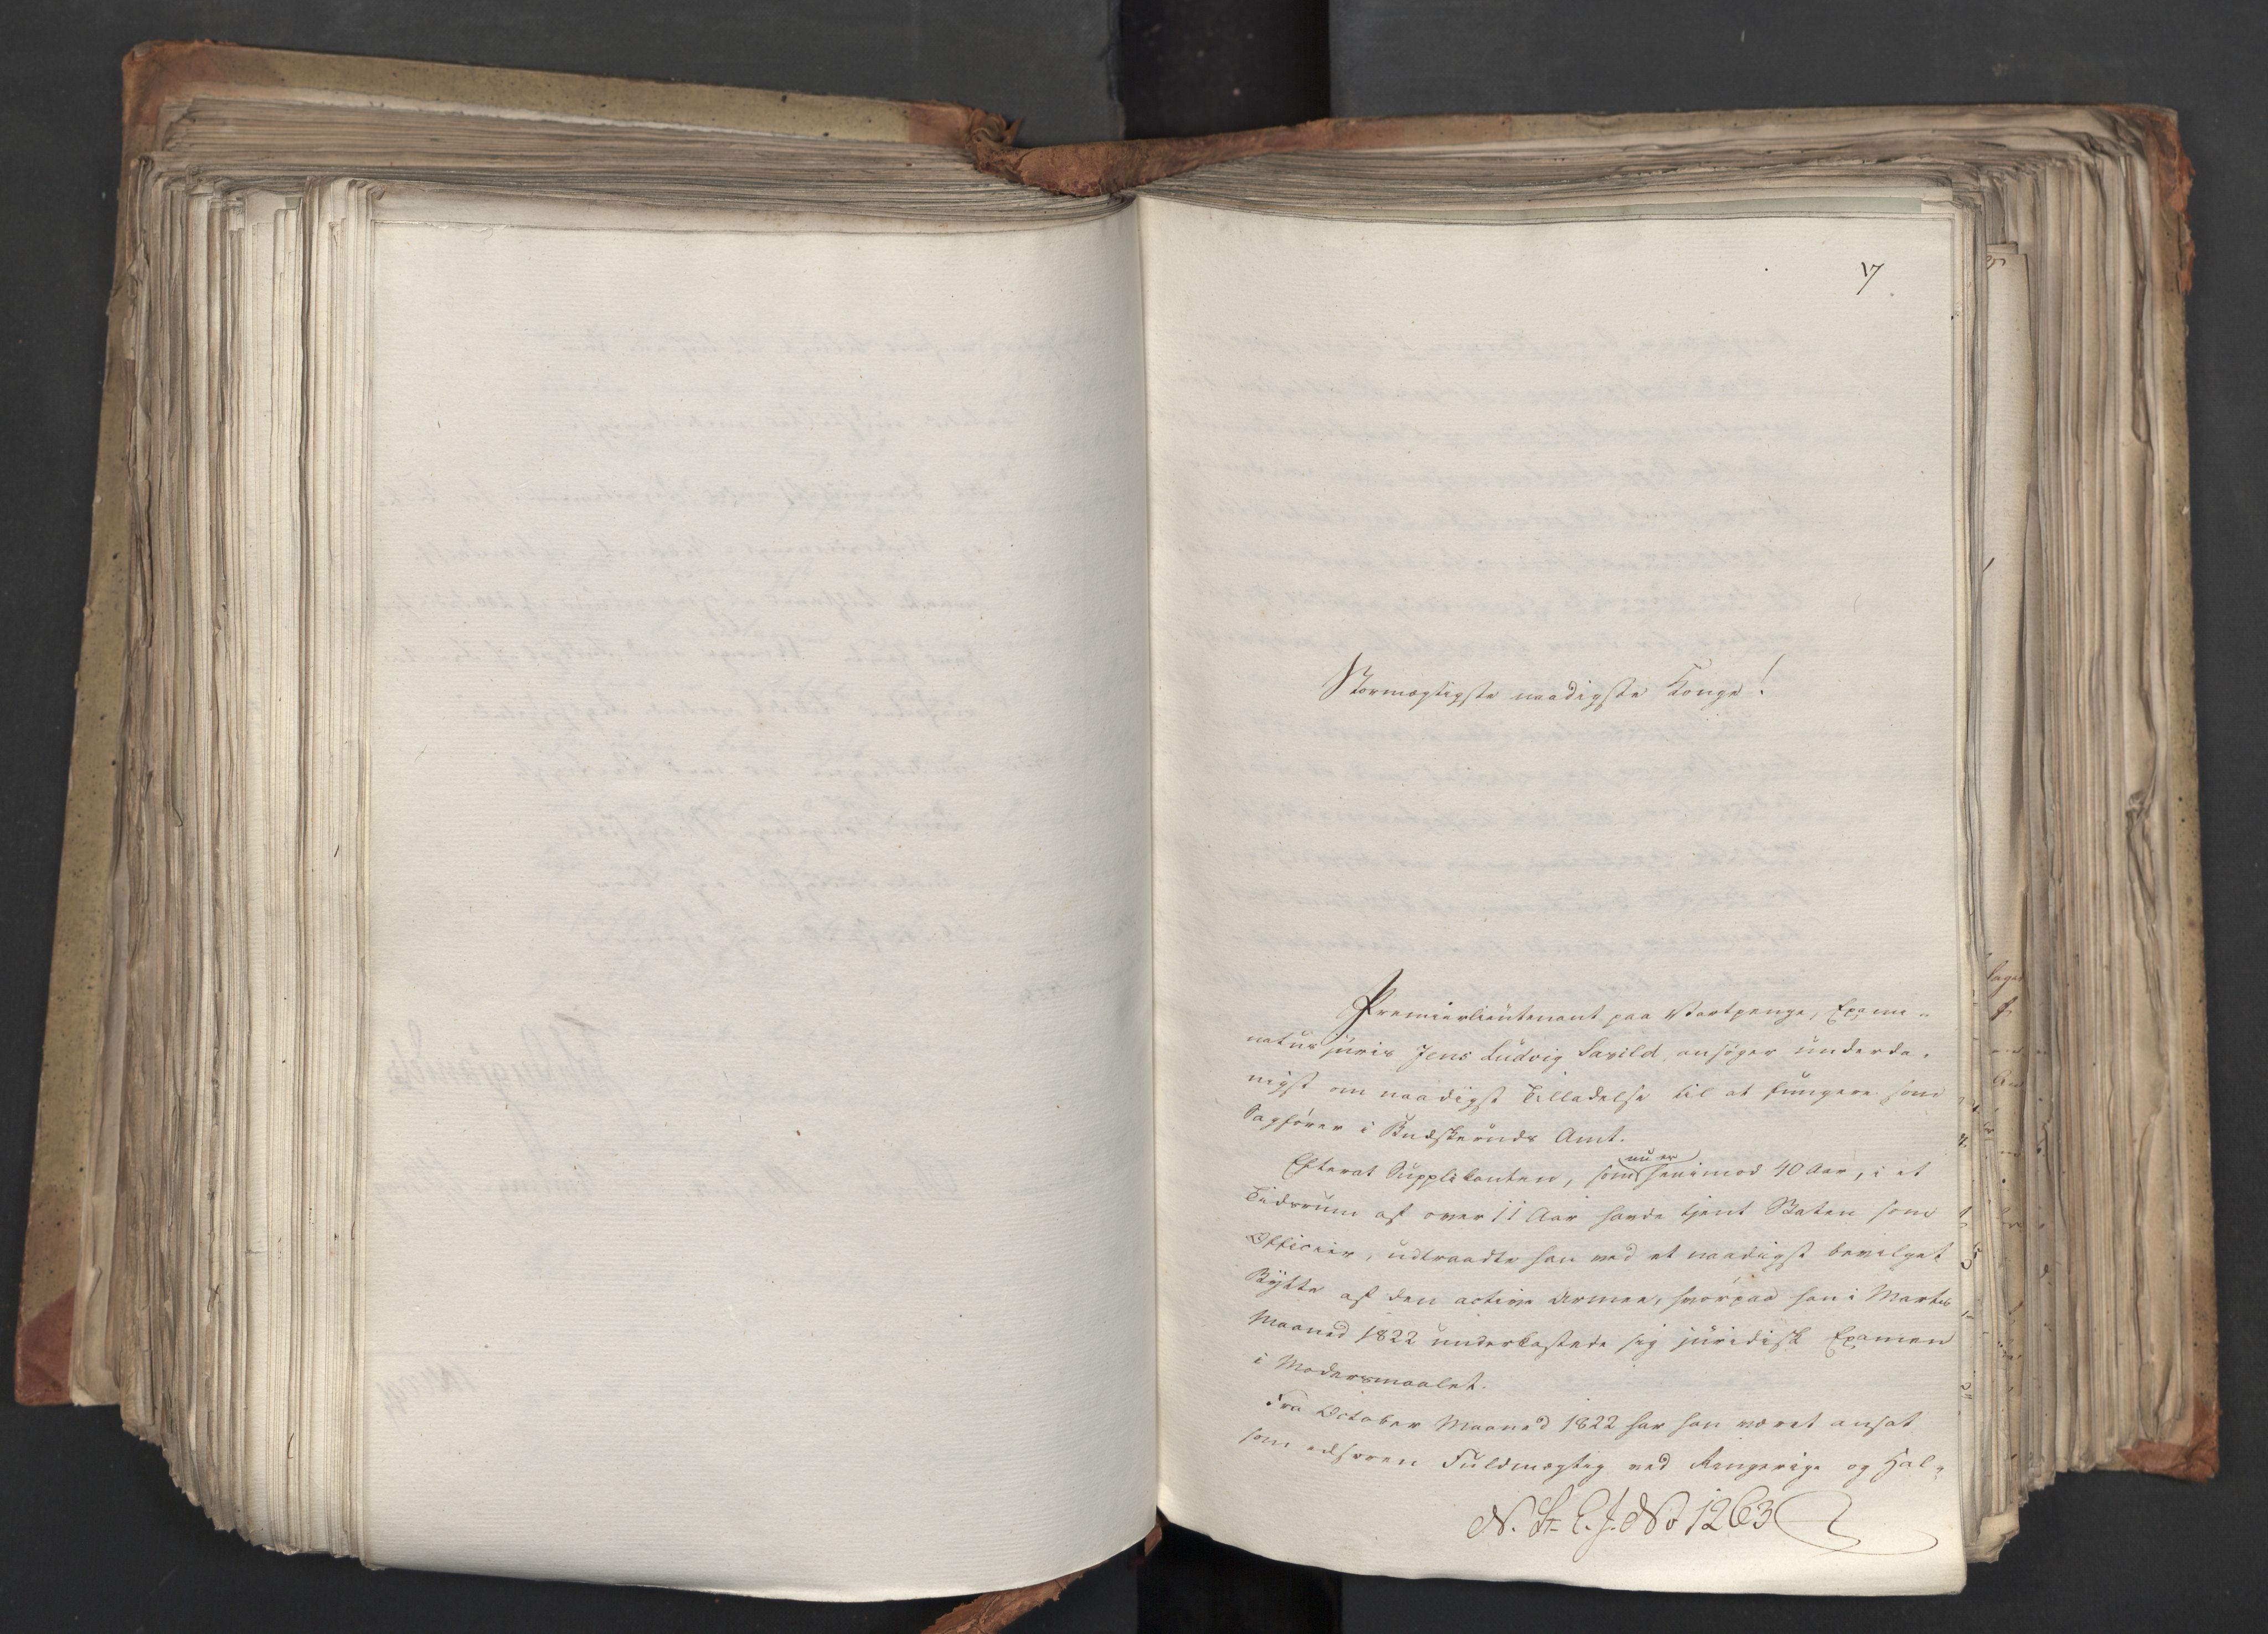 17
Stormægtigste naadigste Konge!
Premierlieutenant paa Vartpenge, Exami-
natus juris Jens Ludvig Lavild, ansøger underda-
nigst om naadigst Tilladelse til at fungere som
Sagfører i Budskeruds Amt.
Efterat Supplikanten, som nu er henimod 40 Aar, i et
Tidsrum af over 11 Aar havde tjent Staten som
Officier, udtraadte han ved et naadigst bevilget
Bytte af den active Armee, hvorpaa han i Martii
Maaned 1822 underkastede sig juridisk Examen
i Modersmaalet.
Fra October Maaned 1822 har han været ansat
som edsvoren Fuldmægtig ved Ringerige og Hal-
N. St. E. J. No 1263